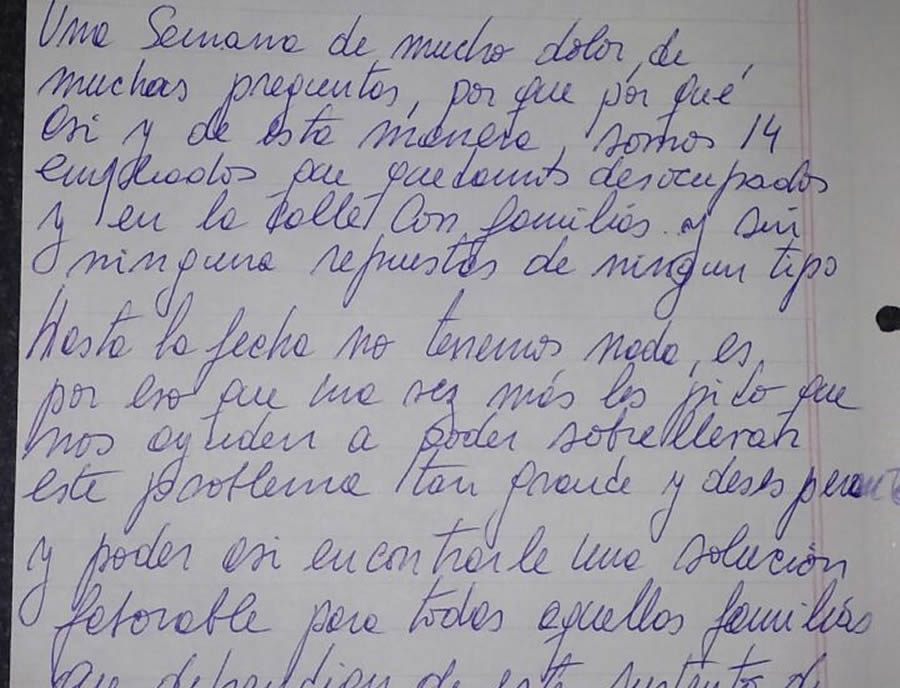 Una Semana de mucho dolor, de
muchas preguntas, por que por qué
asi y de esta manera, somos 14
empleados que quedamos desocupados
y en la calle con familias y sin
ninguna repuestas de ningun tipo
Hasta la fecha no tenemos nada, es
por eso que una vez más les pido que
nos ayuden a poder sobrellevar
este problema tan grande y desesperante
y poder asi encontrarle una solución
faborable para todas aquellas familias
que dependian de este sustento de